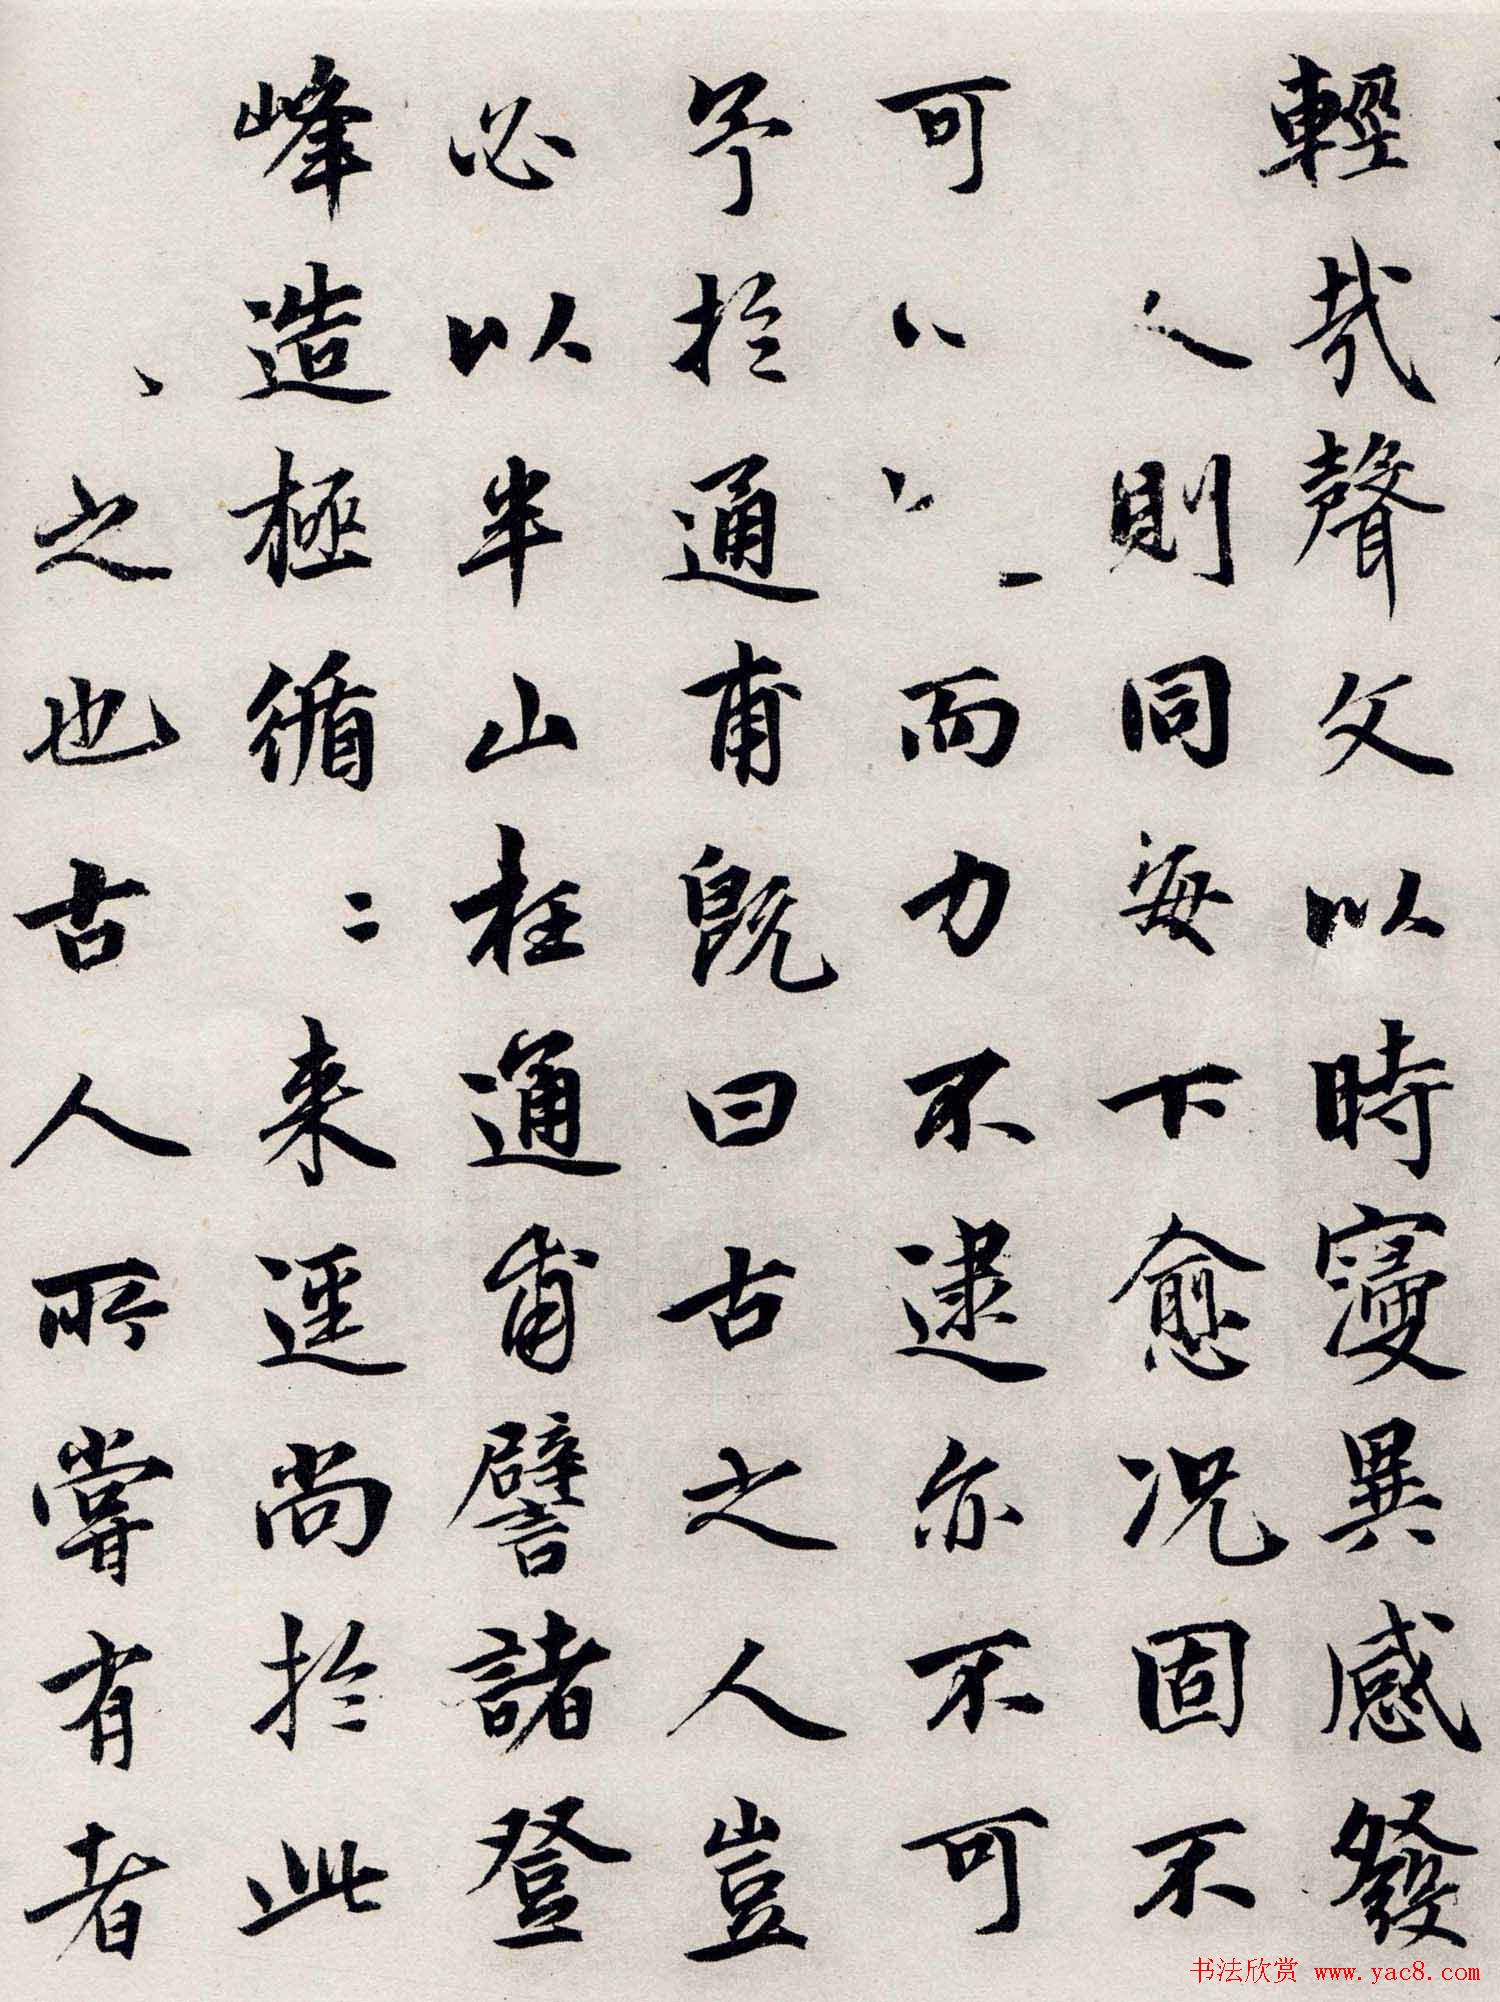 輕哉聲文以時寖異感發
人則同每下愈況固不
可而力不逮亦不可
予於通甫既曰古之人豈
必以半山在通甫譬諸登
峰造極循來逕尚於此
之也古人所嘗有者
书法欣赏 www.yac8.com